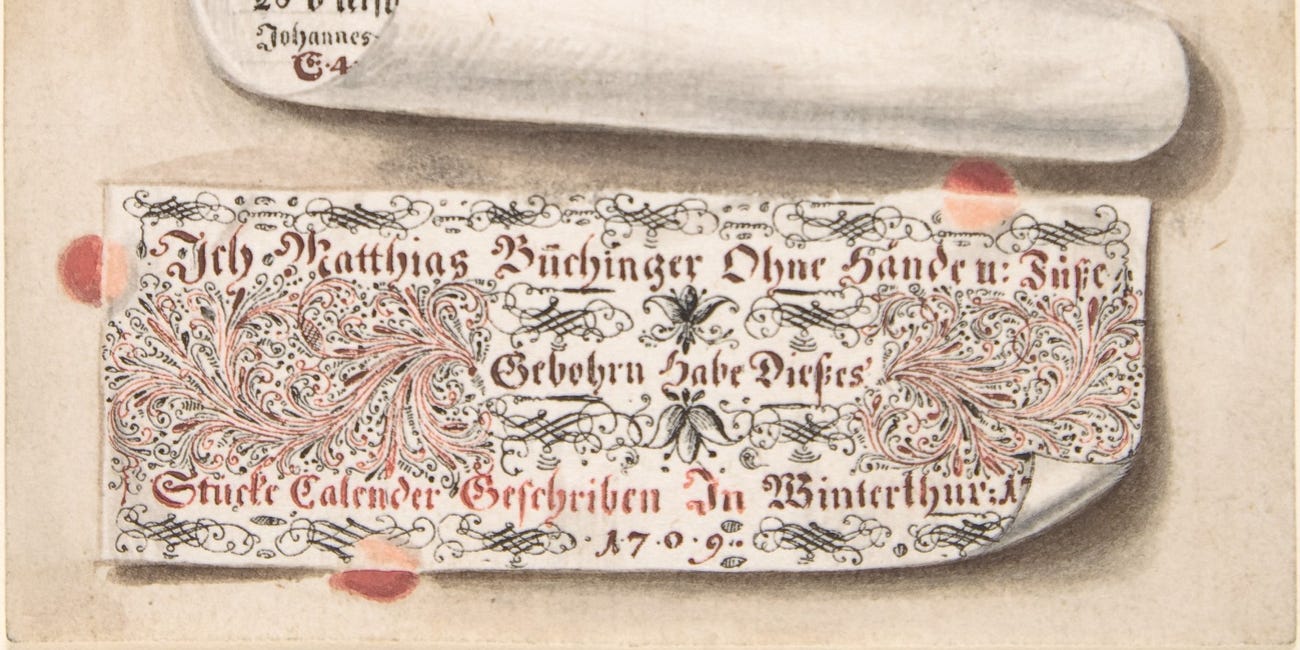 Johannes-
E·4·
Ich Matthias Büchinger Ohne Hände u: Füße
Gebohrn Habe Dießes
Stucke Calender Geschriben In Winterthur: 17
·1·7·0·9·